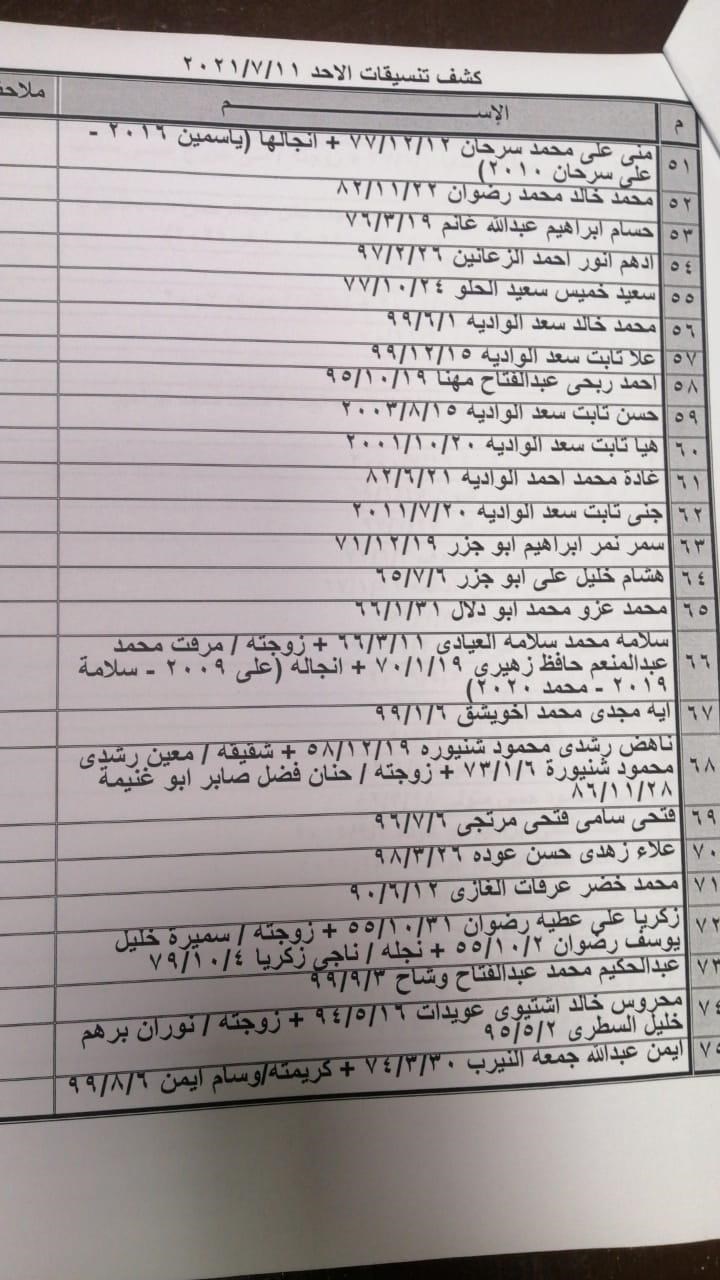 كشف تنسيقات الاحد ٢٠٢١/٧/١١
م الإســـم ملاحظ
٥١ منى على محمد سرحان ٧٧/١٢/١٢ + انجالها (ياسمين ٢٠١٦ -
على سرحان ٢٠١٠)
٥٢ محمد خالد محمد رضوان ٨٢/١١/٢٢
٥٣ حسام ابراهيم عبدالله غانم ٧٦/٣/١٩
٥٤ ادهم انور احمد الزعانين ٩٧/٢/٢٦
٥٥ سعيد خميس سعيد الحلو ٧٧/١٠/٢٤
٥٦ محمد خالد سعد الواديه ٩٩/٦/١
٥٧ علا ثابت سعد الواديه ٩٩/١٢/١٥
٥٨ احمد ربحى عبدالفتاح مهنا ٩٥/١٠/١٩
٥٩ حسن ثابت سعد الواديه ٢٠٠٣/٨/١٥
٦٠ هيا ثابت سعد الواديه ٢٠٠١/١٠/٢٠
٦١ غادة محمد احمد الواديه ٨٢/٦/٢١
٦٢ جنى ثابت سعد الواديه ٢٠١١/٧/٢٠
٦٣ سمر نمر ابراهيم ابو جزر ٧١/١٢/١٩
٦٤ هشام خليل على ابو جزر ٦٥/٧/٦
٦٥ محمد عزو محمد ابو دلال ٦٦/١/٣١
٦٦ سلامه محمد سلامه العيادى ٦٦/٣/١١ + زوجته / مرفت محمد
عبدالمنعم حافظ زهيرى ٧٠/١/١٩ + انجاله (على ٢٠٠٩ - سلامة
٢٠١٩ - محمد ٢٠٢٠)
٦٧ ايه مجدى محمد اخويشق ٩٩/١/٦
٦٨ ناهض رشدى محمود شنيوره ٥٨/١٢/١٩ + شقيقه / معين رشدى
محمود شنيورة ٧٣/١/٦ + زوجته / حنان فضل صابر ابو غنيمة
٨٦/١١/٢٨
٦٩ فتحى سامى فتحى مرتجى ٩٦/٧/٦
٧٠ علاء زهدى حسن عوده ٩٨/٣/٢٦
٧١ محمد خضر عرفات الغازى ٩٠/٦/١٢
٧٢ زكريا على عطيه رضوان ٥٥/١٠/٣١ + زوجته / سميرة خليل
يوسف رضوان ٥٥/١٠/٢ + نجله / ناجى زكريا ٧٩/١٠/٤
٧٣ عبدالحكيم محمد عبدالفتاح وشاح ٩٩/٩/٣
٧٤ محروس خالد اشتيوى عويدات ٩٤/٥/١٦ + زوجته / نوران برهم
خليل السطرى ٩٥/٥/٢
٧٥ ايمن عبدالله جمعه النيرب ٧٤/٣/٣٠ + كريمته/وسام ايمن ٩٩/٨/٦